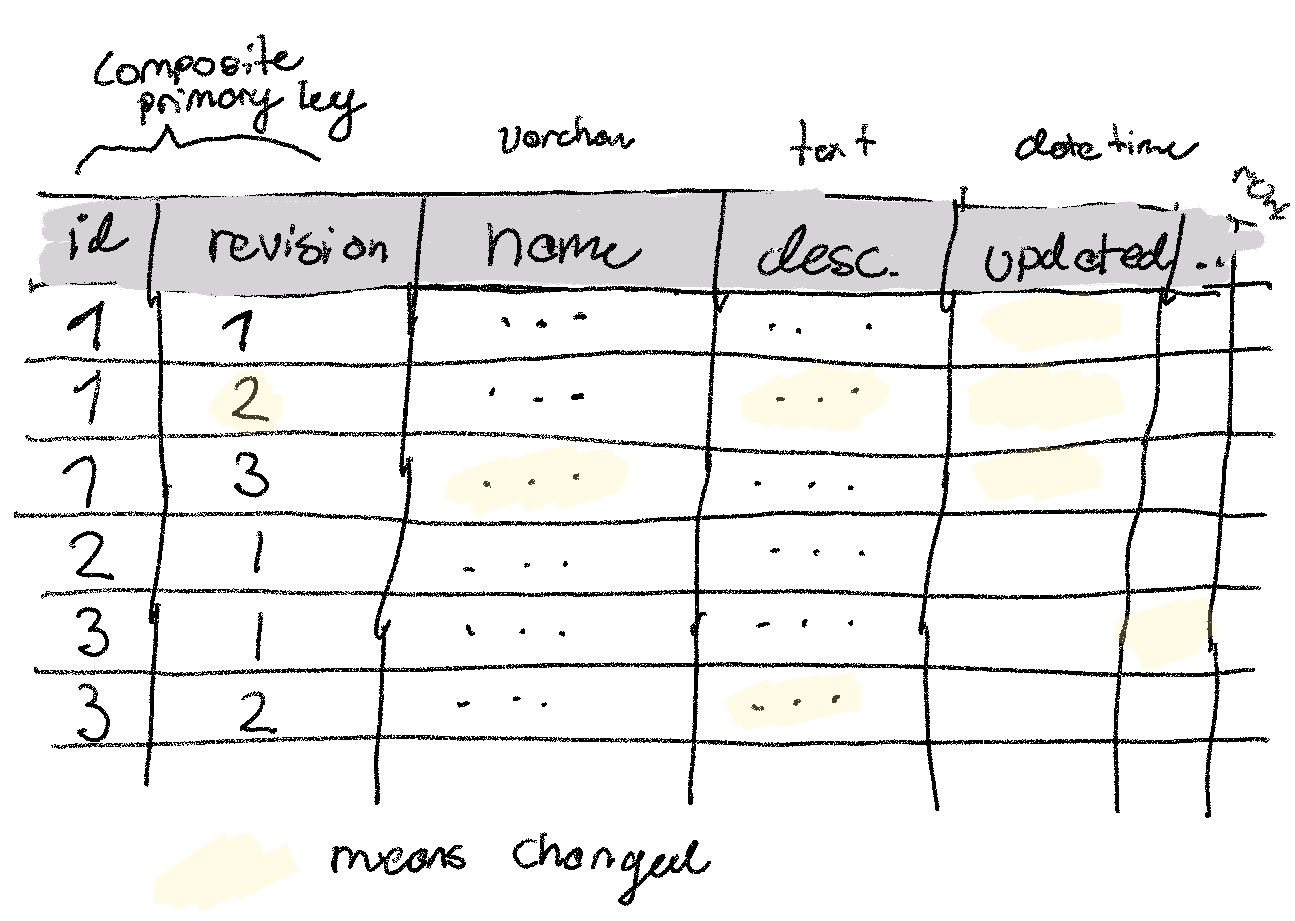 composite
primary key
varchar
text
datetime
id revision name desc. updated ..
1 1 ... ...
1 2 ... ...
1 3 ... ...
2 1 ... ...
3 1 ... ...
3 2 ... ...
means changed